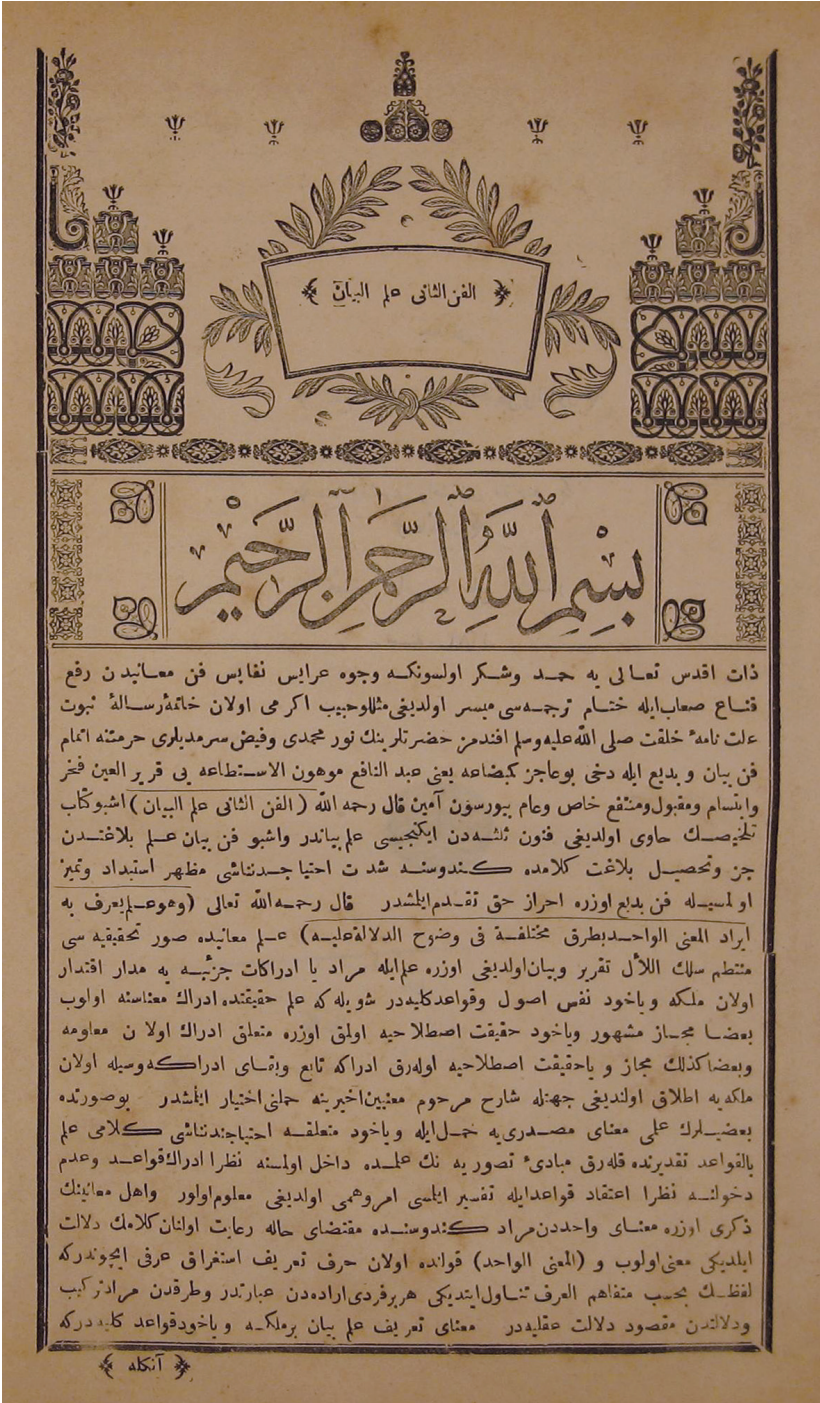 الفن الثانی علم البیان
بِسْمِ ٱللَّهِ ٱلرَّحْمٰنِ ٱلرَّحِيْمِ
ذات اقدس تعالی یه حمد وشكر اولسونكه وجوه عرایس نفایس فن معانیدن رفع
قناع صعاب ایله ختام ترجمه‌سی میسر اولدیغی مثللو حبیب اكرمی اولان خاتمهٔ رسالهٔ نبوت
علت نامهٔ خلقت صلی الله علیه وسلم افندمز حضرتلرینك نور محمدی وفیض سرمدیلری حرمتنه اتمام
فن بیان وبدیع ایله دخی بوعاجز كبضاعه یعنی عبد النافع موهون الاستطاعه یی قریر العین فخر
وابتسام ومقبول ومنتفع خاص وعام بیورسون آمین قال رحمه الله (الفن الثانی علم البیان) اشبو كتاب
تلخیصك حاوی اولدیغی فنون ثلثه‌دن ایكنجیسی علم بیاندر واشبو فن بیان علم بلاغتدن
جز وتحصیل بلاغت كلامده كندوسنه شدت احتیاجدن ناشی مظهر استبداد وتمیز
اولمسیله فن بدیع اوزره احراز حق تقدم ایلمشدر قال رحمه الله تعالی (وهو علم یعرف به
ایراد المعنی الواحد بطرق مختلفة فی وضوح الدلالة علیه) علم معانیده صور تحقیقیه سی
منتظم سلك اللأل تقریر وبیان اولدیغی اوزره علم ایله مراد یا ادراكات جزئیه یه مدار اقتدار
اولان ملكه ویاخود نفس اصول وقواعد كلیه‌در شویله كه علم حقیقتده ادراك معناسنه اولوب
بعضا مجاز مشهور ویاخود حقیقت اصطلاحیه اولمق اوزره متعلق ادراك اولان معلومه
وبعضا كذلك مجاز ویا حقیقت اصطلاحیه اوله‌رق ادراكه تابع وبقای ادراكه وسیله اولان
ملكه‌یه اطلاق اولندیغی جهتله شارح مرحوم معنیین اخیرینه حملنی اختیار ایلمشدر بوصورتده
بعضیلرك علمی معنای مصدری‌یه حمل ایله ویاخود متعلقه احتیاجندن ناشی كلامی علم
بالقواعد تقدیرنده قله‌رق مبادئ تصوریه نك علمده داخل اولمسنه نظرا ادراك قواعد وعدم
دخولنه نظرا اعتقاد قواعد ایله تفسیر ایلمسی امر وهمی اولدیغی معلوم اولور واهل معانینك
ذكری اوزره معنای واحددن مراد كندوسنده مقتضای حاله رعایت اولنان كلامك دلالت
ایلدیكی معنی اولوب و (المعنی الواحد) قولنده اولان حرف تعریف استغراق عرفی ایچوندركه
لفظك بحسب متفاهم العرف تناول ایتدیكی هر بر فردی اراده‌دن عبارتدر وطرقدن مراد تركیب
ودلالتدن مقصود دلالت عقلیه‌در معنای تعریف علم بیان بر ملكه ویاخود قواعد كلیه‌دركه
آنكله